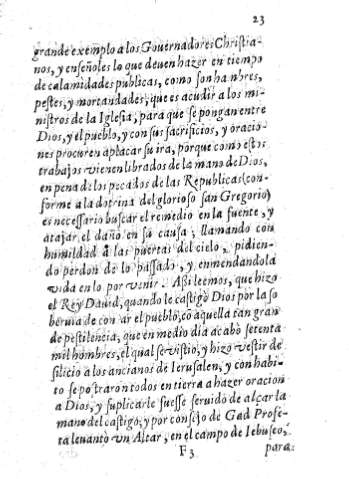 23
grande exemplo a los Gouernadores Christia-
nos, y enseñoles lo que deuen hazer en tiempo
de calamidades publicas, como son hanbres,
pestes, y mortandades; que es acudir a los mi-
nistros de la Iglesia, para que se pongan entre
Dios, y el pueblo, y con sus sacrificios, y oracio-
nes procuren aplacar su ira, porque como estos
trabajos vienen librados de la mano de Dios,
en pena de los pecados de las Republicas (con-
forme a la dotrina del glorioso san Gregorio)
es necessario buscar el remedio en la fuente, y
atajar el daño en su causa; llamando con
humildad a las puertas del cielo, pidien-
do perdon de lo passado, y enmendando la
vida en lo por venir. Assi leemos, que hizo
el Rey Dauid, quando le castigò Dios por la so
beruia de contar el pueblo, cō aquella tan gran
de pestilencia, que en medio dia acabò setenta
mil hombres, el qual se vistio, y hizo vestir de
silicio a los ancianos de Ierusalen, y con habi-
to se postraron todos en tierra a hazer oracion
a Dios, y suplicarle fuesse seruido de alçar la
mano del castigo, y por consejo de Gad Profe-
ta leuantò vn Altar, en el campo de Iebuseo,
F 3 para